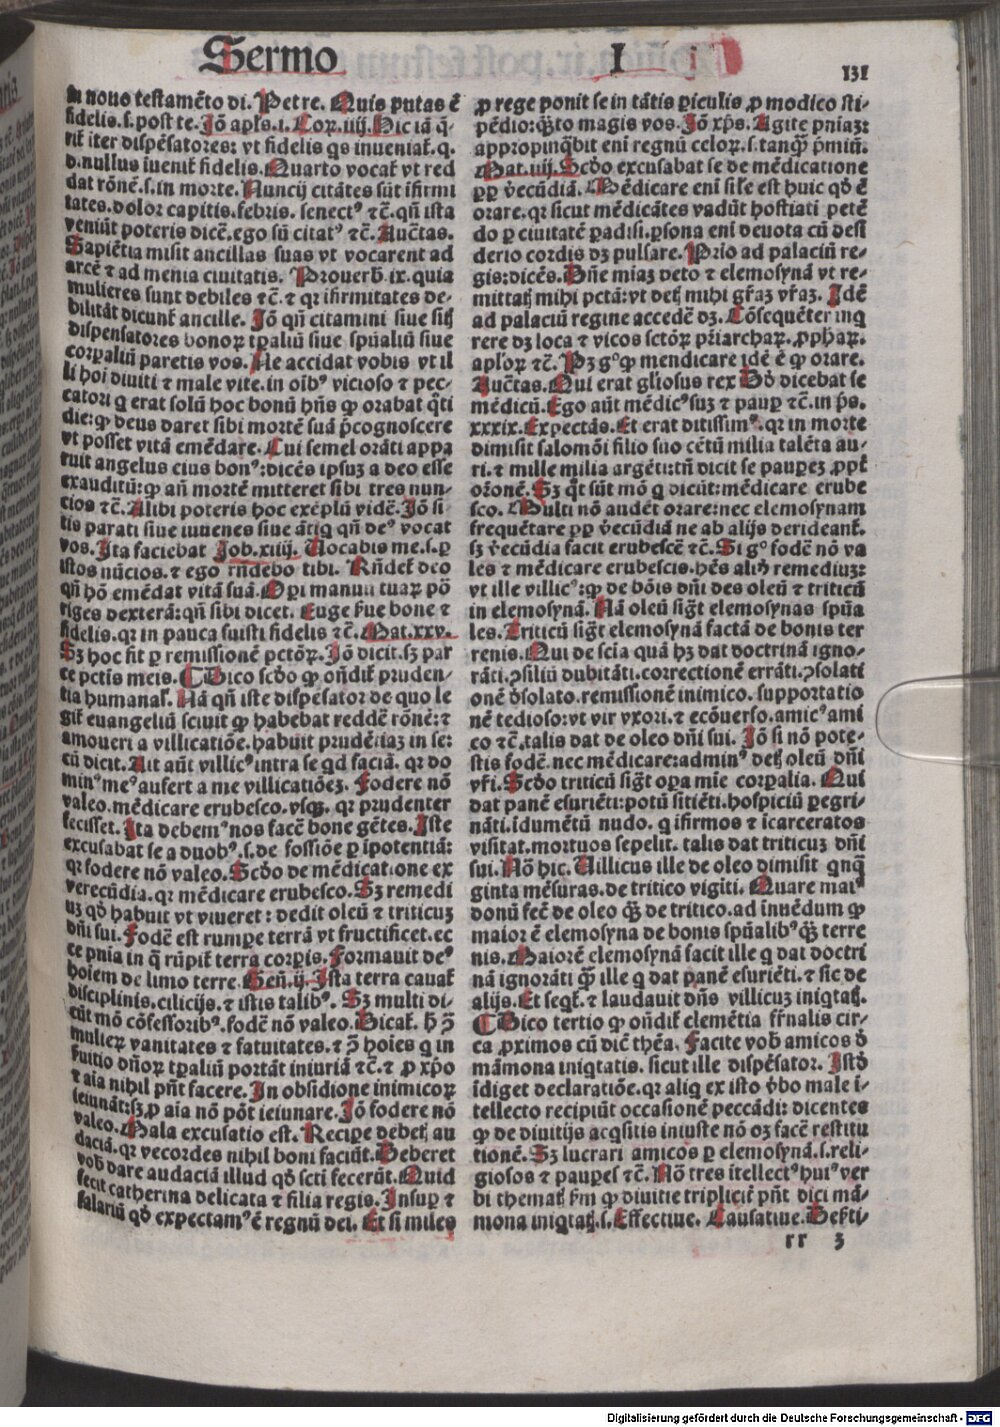 Sermo I
131
in nouo testamēto di. Petre. Quis putas ē
fidelis. s. post te. Jō apl's. i. Cor. iiij. Hic iā q̄-
rit͛ iter dispēsatores: vt fidelis qs inueniat͛. q.
d. nullus iuenit͛ fidelis. Quarto vocat͛ vt red
dat rōnē. s. in morte. Nuncij citātes sūt ifirmi
tates. dolor capitis. febris. senectꝰ ⁊c̄. qn̄ ista
veniūt poteris dicē. ego sū citatꝰ ⁊c̄. Auc̄tas.
Sapiētia misit ancillas suas vt vocarent ad
arcē ⁊ ad menia ciuitatis. Prouerb. ix. quia
mulieres sunt debiles ⁊c̄. ⁊ qr ifirmitates de-
bilitāt dicunt͛ ancille. Jō qn̄ citamini siue sitꝭ
dispensatores bonoꝝ tp̄aliū siue spūaliū siue
corpaliū paretis vos. Ne accidat vobis vt il
li hoi diuiti ⁊ male vite. in oībꝰ vicioso ⁊ pec-
catori q erat solū hoc bonū hn̄s ꝙ orabat q̄ti
die: ꝙ deus daret sibi mortē suā p̄cognoscere
vt posset vitā emēdare. Cui semel orāti appa
ruit angelus eius bonꝰ: dicēs ipsuꝫ a deo esse
exauditū: ꝙ an̄ mortē mitteret sibi tres nun-
cios ⁊c̄. Alibi poteris hoc exēplū vidē. Jō si
tis parati siue iuuenes siue ātiq qn̄ deꝰ vocat
vos. Ita faciebat Job. xiiij. Uocabis me. s. ꝑ
istos nūcios. ⁊ ego rn̄debo tibi. Rn̄det͛ deo
qn̄ hō emēdat vitā suā. Opi manuū tuaꝝ po
riges dexterā: qn̄ sibi dicet. Euge s̄ue bone ⁊
fidelis. qr in pauca fuisti fidelis ⁊c̄. Mat. xxv.
Sꝫ hoc fit ꝑ remissionē pctōꝝ. Jō dicit. sꝫ par
ce pctis meis. ¶ Dico scd̄o ꝙ on̄dit͛ pruden-
tia humana. Nā qn̄ iste dispēsator de quo le
git͛ euangeliū sciuit ꝙ habebat reddē rōnē: ⁊
amoueri a villicatiōe. habuit prudētiaꝫ in se:
cū dicit. Ait aūt villicꝰ intra se qd faciā. qr do
minꝰ meꝰ aufert a me villicatiōeꝫ. Fodere nō
valeo. mēdicare erubesco. vsqꝫ. qr prudenter
fecisset. Ita debemꝰ nos facē bone gētes. Iste
excusabat se a duobꝰ. s. de fossiōe ꝓ ipotentiā:
qr fodere nō valeo. Scd̄o de mēdicatione ex
verecūdia. qr mēdicare erubesco. Sꝫ remedi
uꝫ qd̄ habuit vt viueret: dedit oleū ⁊ triticuꝫ
dn̄i sui. Fodē est rumpe terrā vt fructificet. ec
ce pnīa in q̄ rūpit͛ terra corpis. Formauit deꝰ
hoiem de limo terre. Gen̄. ij. Ista terra cauat͛
disciplinis. cilicijs. ⁊ istis talibꝰ. Sꝫ multi di-
cūt mō cōfessoribꝰ. fodē nō valeo. Dicat͛. h̄
mulieꝝ vanitates ⁊ fatuitates. ⁊ hoies q in
s̄uitio dn̄oꝝ tp̄aliū portāt iniuriā ⁊c̄. ⁊ ꝓ xp̄o
⁊ aīa nihil pn̄t facere. In obsidione inimicoꝝ
ieiunāt: sꝫ ꝓ aīa nō pōt ieiunare. Jō fodere nō
valeo. Mala excusatio est. Recipe debetꝭ au
daciā. qr vecordes nihil boni faciūt. Deberet
vob̄ dare audaciā illud qd̄ scti fecerūt. Quid
fecit catherina delicata ⁊ filia regis. Insup ⁊
salariū qd̄ expectamꝰ ē regnū dei. Et si miles
ꝓ rege ponit se in tātis piculis ꝓ modico sti-
pēdio: q̄to magis vos. Jō xp̄s. Agite pniaꝫ:
appropinq̄bit eni regnū celoꝝ. s. tanq̄ p̄miū:
Mat. iiij. Scd̄o excusabat se de mēdicatione
ꝓp v̄ecūdiā. Mēdicare eni sil'e est huic qd̄ ē
orare. qr sicut mēdicātes vadūt hostiati petē
do ꝑ ciuitatē padisi. psona eni deuota cū desi
derio cordis dꝫ pulsare. Prīo ad palaciū re-
gis: dicēs. Dn̄e miaꝫ peto ⁊ elemosynā vt re-
mittatꝭ mihi pctā: vt detꝭ mihi gr̄aꝫ vr̄aꝫ. Idē
ad palaciū regine accedē dꝫ. Cōsequēter inq
rere dꝫ loca ⁊ vicos sctōꝝ p̄riarchaꝝ. ꝓphaꝝ.
apl'oꝝ ⁊c̄. Pꝫ gº ꝙ mendicare idē ē ꝙ orare.
Auc̄tas. Qui erat gl'iosus rex Dd̄ dicebat se
mēdicū. Ego aūt mēdicꝰ suꝫ ⁊ paup ⁊c̄. in p̄s.
xxxix. Expectās. Et erat ditissimꝰ. qr in morte
dimisit salomōi filio suo cētū milia talēta au-
ri. ⁊ mille milia argēti: tn̄ dicit se paupeꝫ ꝓpt͛
or̄onē. Sꝫ q̄t sūt mō q dicūt: mēdicare erube
sco. Multi nō audēt orare: nec elemosynam
frequētare ꝓp v̄ecūdiā ne ab alijs derideant͛.
sꝫ v̄ecūdia facit erubescē ⁊c̄. Si gº fodē nō va
les ⁊ mēdicare erubescis. hēs aliđ remediuꝫ:
vt ille villicꝰ: ꝙ de bōis dn̄i des oleū ⁊ triticū
in elemosynā. Nā oleū siḡt elemosynas spūa
les. Triticū siḡt elemosynā factā de bonis ter
renis. Qui de scīa quā hꝫ dat doctrinā igno-
rāti. ꝯsiliū dubitāti. correctionē errāti. ꝯsolati
onē dsolato. remissionē inimico. supportatio
nē tedioso: vt vir vxori. ⁊ ecōuerso. amicꝰ ami
co ⁊c̄. talis dat de oleo dn̄i sui. Jō si nō pote-
stis fodē. nec mēdicare: adminꝰ detꝭ oleū dn̄i
vr̄i. Scd̄o triticū siḡt opa mīe corpalia. Qui
dat panē esuriēti: potū sitiēti. hospiciū pegri-
nāti. idumētū nudo. q ifirmos ⁊ icarceratos
visitat. mortuos sepelit. talis dat triticuꝫ dn̄i
sui. Nō hic. Uillicus ille de oleo dimisit qnq̄
ginta mēsuras. de tritico vigīti. Quare maiꝰ
donū fec̄ de oleo q̄ꝫ de tritico. ad inuēdum ꝙ
maior ē elemosyna de bonis spūalibꝰ q̄ꝫ terre
nis. Maiorē elemosynā facit ille q dat doctri
nā ignorāti q̄ꝫ ille q dat panē esuriēti. ⁊ sic de
alijs. Et seqt͛. ⁊ laudauit dn̄s villicuꝫ iniqtatꝭ.
¶ Dico tertio ꝙ on̄dit͛ clemētia fr̄nalis cir-
ca ꝓximos cū dic̄ thēa. Facite vob̄ amicos đ
māmona iniqtatis. sicut ille dispēsator. Istđ
īdiget declaratiōe. qr aliq ex isto v̄bo male i-
tellecto recipiūt occasionē peccādi: dicentes
ꝙ de diuitijs acqsitis iniuste nō oꝫ facē restitu
tionē. Sꝫ lucrari amicos ꝑ elemosynā. s. reli-
giosos ⁊ paupes ⁊c̄. Nō tres itellectꝰ huiꝰ ver
bi thematꝭ s̄m ꝙ diuitie triplicit͛ pn̄t dici mā-
mona iniqtatꝭ. s. Effectiue. Causatiue. Defecti-
rr 3
Digitalisierung gefördert durch die Deutsche Forschungsgemeinschaft - DFG